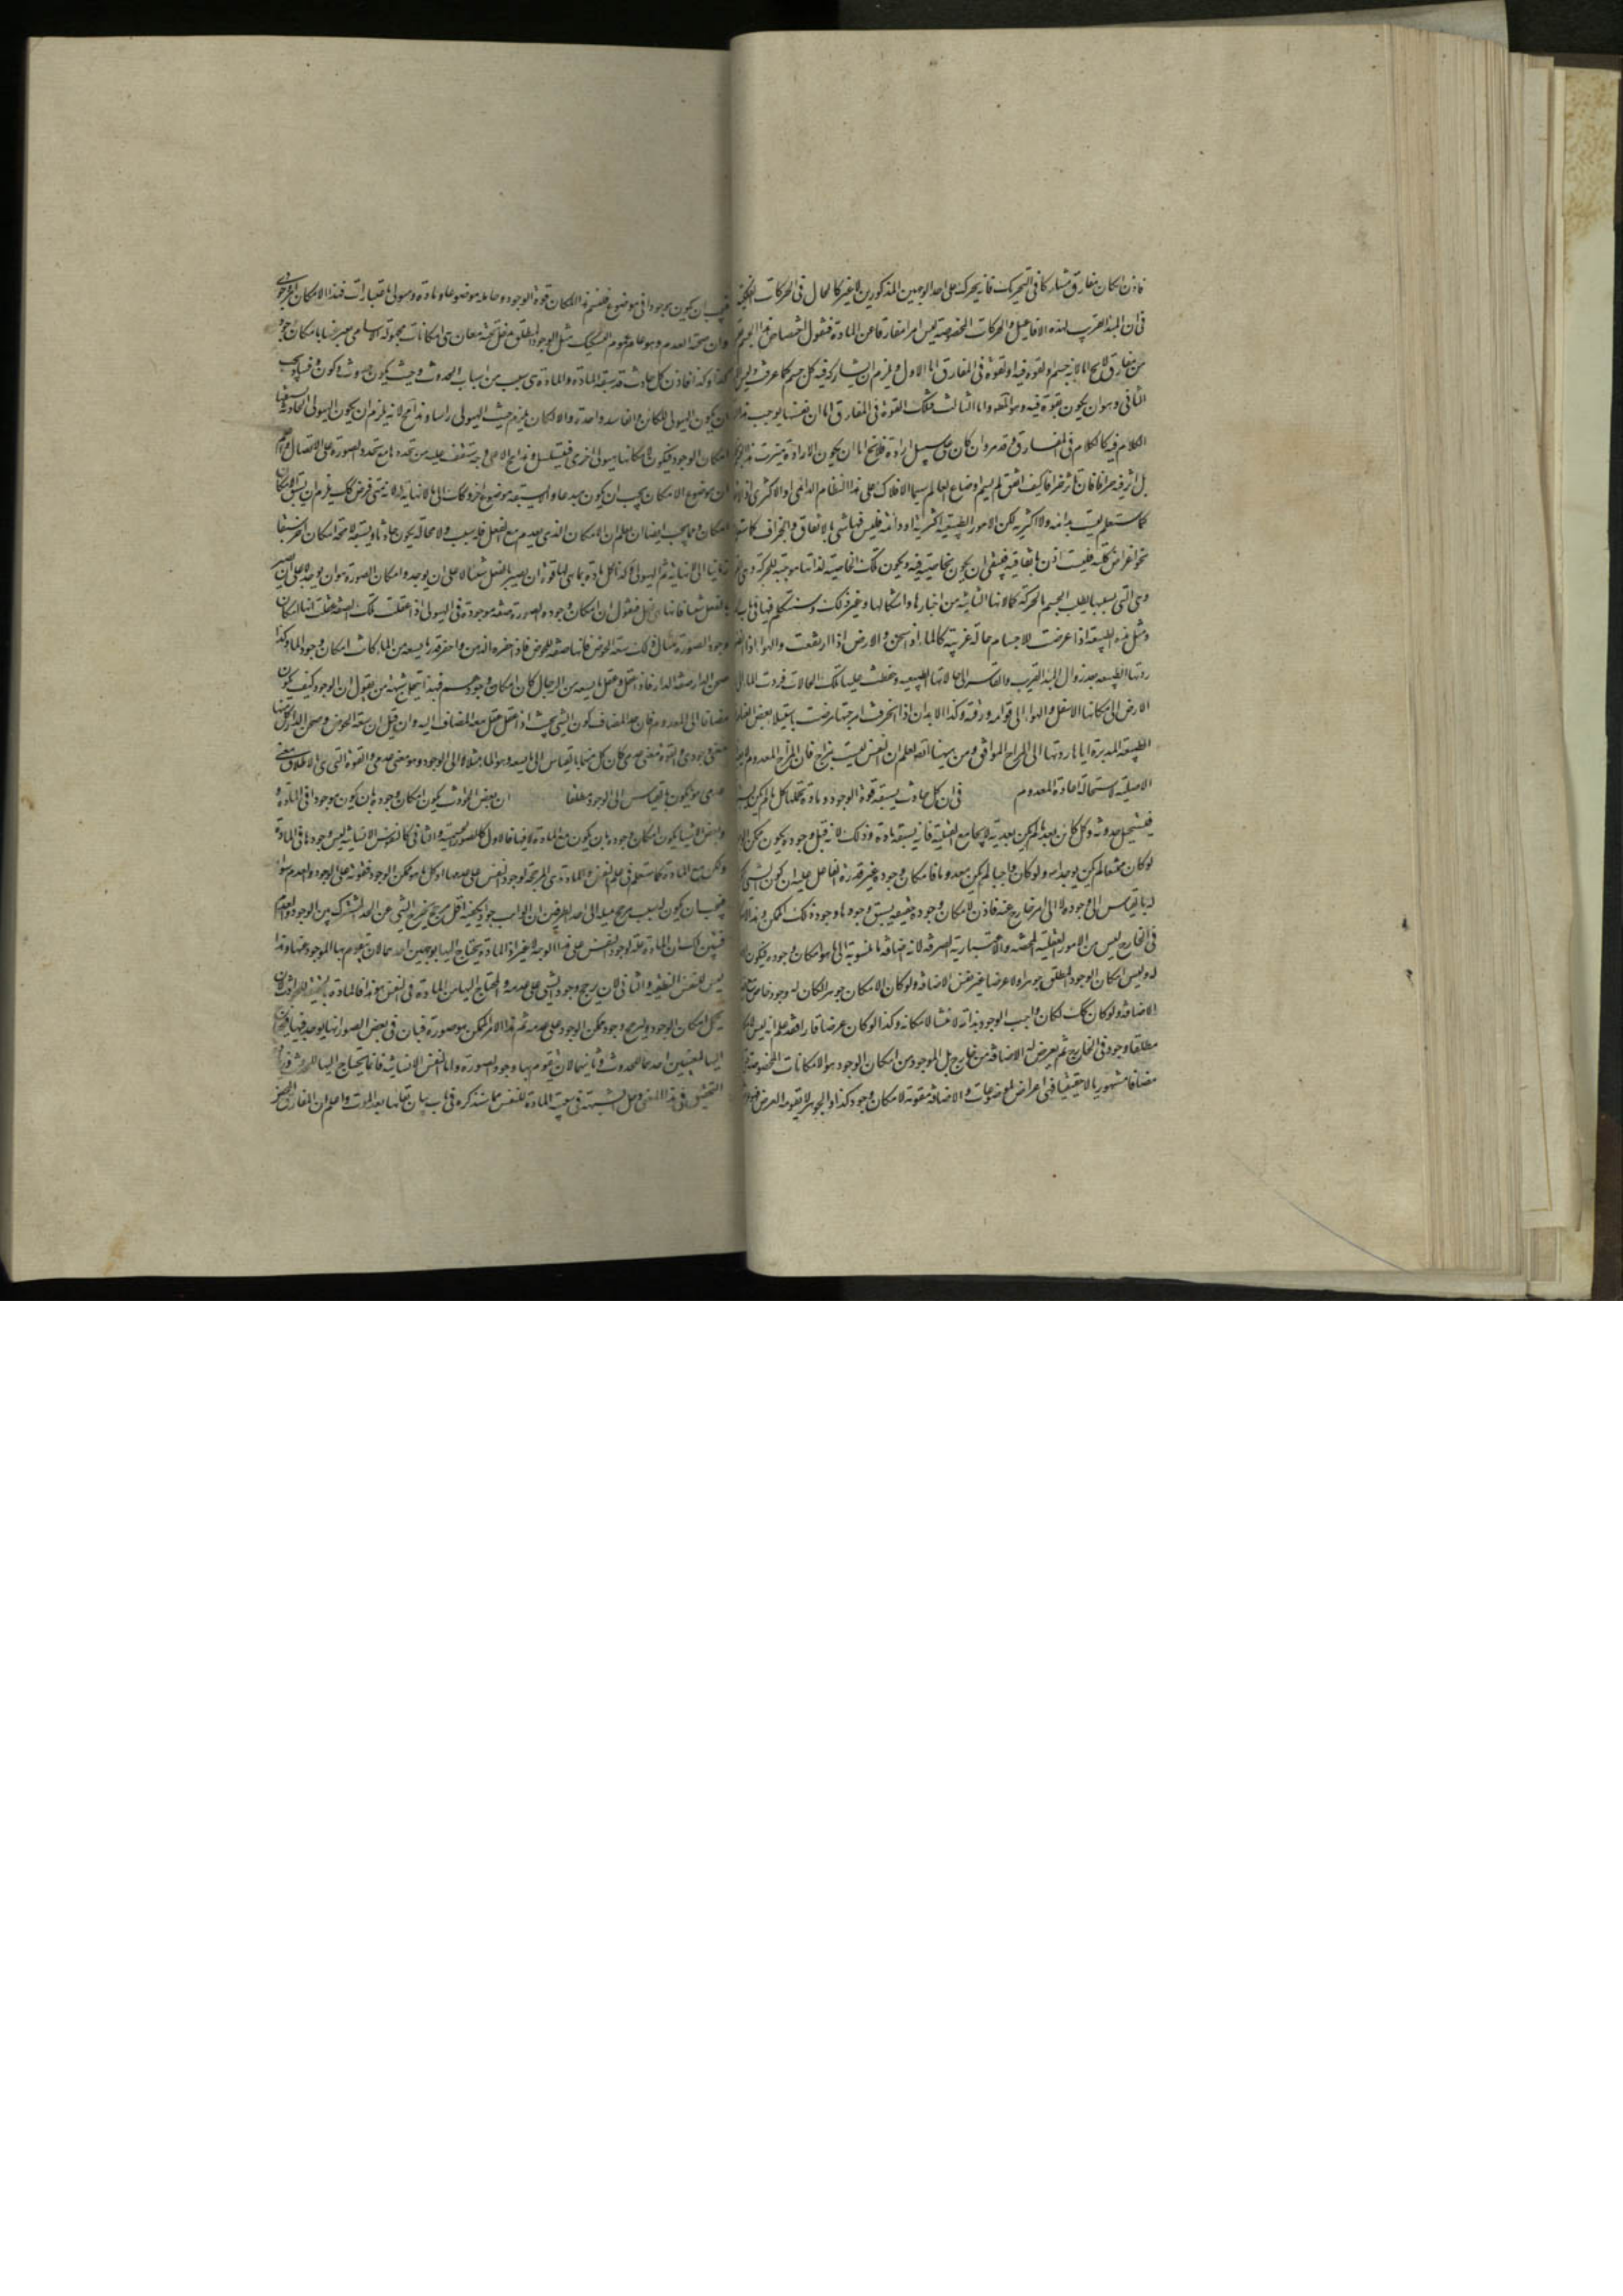 فاذن ان كان مفارق مشاركا فى التحريك فانه يحركه على احد الوجهين المذكورين لا غير كالحال فى الحركات الفلكية
فى ان المبدأ القريب لهذه الافاعيل والحركات المخصوصة ليس امرا مفارقا عن المادة فنقول اختصاص هذا الجسم
من مفارق لا يخ اما لانه جسم او لقوة فيه او لقوة فى المفارق اما الاول فيلزم ان يشاركه فيه كل جسم كما عرفت وليس
الثانى وهو ان يكون لقوة فيه وهو المط واما الثالث فتلك القوة فى المفارق اما ان نفسها يوجب هذا
الكلام فيه كالكلام فى المفارق وقد مر وان كان على سبيل ارادة فلا يخ اما ان يكون الارادة ميزت هذا الجسم
بل اثر فيه جزافا فان تاثر جزافا كيف اتفق لم يستمر اوضاع العالم سيما الافلاك على هذا النظام الدائمى او الاكثرى
كما ستعلم ليست بدائمة ولا اكثرية لكن الامور الطبيعية اكثرية او دائمة فليس فيها شئ بالاتفاق والجزاف
نحو اغراض كلية فليست اذن باتفاقية فبقى ان يكون بخاصية فيه ويكون تلك الخاصية لذاتها موجبة للحركة وهى
وهى التى بسببها يطلب الجسم بالحركة كمالاتها الثانية من احيازها واشكالها وغير ذلك وسنتكلم فيها فى باب
ومثل هذه الطبيعة اذا عرضت للاجسام حالة غريبة كالماء اذا سخن والارض اذا ارتفعت والهواء اذا
ردتها الطبيعة بعد زوال المبدأ الغريب والقاسر الى حالاتها الطبيعية وحفظت عليها تلك الحالات فردت الماء الى
الارض الى مكانها الاسفل والهواء الى قوامه ورقته وكذا الابدان اذا انحرفت امزجتها مرضت باستيلاء بعض
الطبيعة المدبرة اياها ردتها الى المزاج الموافق ومن ههنا ايضا تعلم ان النفس ليست بمزاج فان المزاج المعدوم
الاصلية لاستحالة اعادة المعدوم فى ان كل حادث يسبقه قوة الوجود ومادة تحملها كل ما لم يكن
فيستحيل حدوثه وكل كائن بعد ما لم يكن بعدية لا يجامع القبلية فانه يسبقه مادة وذلك لانه قبل وجوده يكون ممكن
لو كان ممتنعا لم يكن يوجد ابدا ولو كان واجبا لم يكن معدوما فامكان وجوده غير قدرة الفاعل عليه لان كون الشئ
له بالقياس الى وجوده لا الى امر خارج عنه فاذن لامكان وجوده حقيقة يسبق وجودها وجود ذلك الممكن
فى الخارج ليس من الامور العقلية المحضة والاعتبارية الصرفة لانه اضافة ما منسوبة الى ما هو امكان وجوده فيكون
له وليس امكان الوجود المطلق جوهرا ولا عرضا غير نفس الاضافة ولو كان الامكان جوهرا لكان له وجود خاص
الاضافة ولو كان كك لكان واجب الوجود بذاته لا منشأ لامكانه وكذا لو كان عرضا قارا فقد علم انه ليس
مطلقا وجود فى الخارج ثم يعرض له الاضافة من خارج بل الموجود من امكان الوجود هو الامكانات المخصوصة
مضافا مشهوريا لا حقيقيا فهى اعراض لموضوعات والاضافة مقومة لامكان وجود كذا والجوهر لا يقومه العرض
فيجب ان يكون موجودا فى موضوع فلنسم هذا الامكان قوة الوجود وحامله موضوعا ومادة وهيولى باعتبارات فهذا الامكان
وان صحته العدم وهو عام عموم التشكيك مثل الوجود المطلق يدخل تحته معان هى امكانات مجهولة الاسامى يعبر عنها بامكان وجود
كذا وكذا فاذن كل حادث قد سبقه المادة والمادة هى سبب من اسباب الحدوث وحيث يكون حدوث وكون وفساد يجب
ان يكون الهيولى للكائن والفاسد واحدة والا لكان يلزم حدث الهيولى راسا وهذا مح لانه يلزم ان يكون الهيولى الحادثة يسبقها
امكان الوجود فيكون لامكانها هيولى اخرى فيتسلسل وهذا مح الا على وجه ستقف عليه من تجددها مع تجدد الصورة على الاتصال
لان موضوع الامكان يجب ان يكون مبدعا والا يسبقه موضوع اخر وكان الى ما لا نهاية له لانه متى فرض كك يلزم ان يسبق الامكان
امكان ومما يجب ايضا ان يعلم ان الامكان الذى يعدم مع الفعل فله سبب ولا محالة يكون حادثا ويسبقه لا محة امكان اخر سبقا
زمانيا الى لا نهاية ثم الهيولى كذا كل مادة بما هى لها قوة ان يصير بالفعل شيئا لا على ان يوجد وامكان الصورة هو ان يوجد لا على ان يصير
بالفعل شيئا فانها هى فعل فنقول ان امكان وجود الصورة صفة موجودة فى الهيولى اذا عقلت تلك الصفة عقلت انها امكان
وجود الصورة مثال ذلك سعة الحوض فانها صفة للحوض فاذا احضره الذهن واحضر قدر ما يسعه من الماء كانت امكان وجود الماء وكذا
صحن الدار صفة الدار فاذا عقل وعقل ما يسعه من الرجال كان امكان وجودهم فبهذا ينحل شبهة من يقول ان الوجود كيف يكون
مضافا الى المعدوم فان حد المضاف كون الشئ بحيث اذا عقل عقل معه المضاف اليه وان قيل ان سعة الحوض وصحن الدار كل منها
معنى وجودى والقوة معنى عدمى كان كل منها بالقياس الى ما يسعه وهو الماء مثلا او الى الوجود وهو معنى عدمى والقوة التى هى الاطلاق معنى
عدمى هو يكون بالقياس الى الوجود مطلقا ان بعض الحوادث يكون امكان وجوده بان يكون موجودا فى المادة
وبعض الاشياء يكون امكان وجوده بان يكون مع المادة لا فيها فالاول كالصور الجسمية والثانى كالنفس الانسانية ليس وجودها فى المادة
ولكن مع المادة كما ستعلم فى علم النفس والمادة هى المرجحة لوجود النفس على عدمها اذ كل ما هو ممكن الوجود فنقوته على الوجود والعدم سواء
فيجب ان يكون لسبب مرجح ميله الى احد الطرفين
فتبين ان المادة علة لوجود النفس على هذا الوجه لا غير اذ المادة يحتاج اليها بوجهين احدهما لان يقوم بها الموجود عنها وهذا
ليس للنفس النطقية والثانى لان يرجح وجود الشئ على عدمه والمحتاج اليها من المادة فى النفس هو هذا فالمادة
يحمل امكان الوجود ويترجح وجود ممكن الوجود على عدمه ثم هذا الامر الممكن هو صورة فبان فى بعض الصور انها يوجد فيها
اليها لمعنيين احدهما للحدوث وثانيهما لان يقوم بها وجود الصورة واما النفس الانسانية فانما يحتاج اليها للحدوث
التحقيق فى هذا المعنى وحل الشبهة فى معية المادة للنفس مما سنذكره فى باب بيان بقائها بعد الموت واعلم ان المفارق المحض